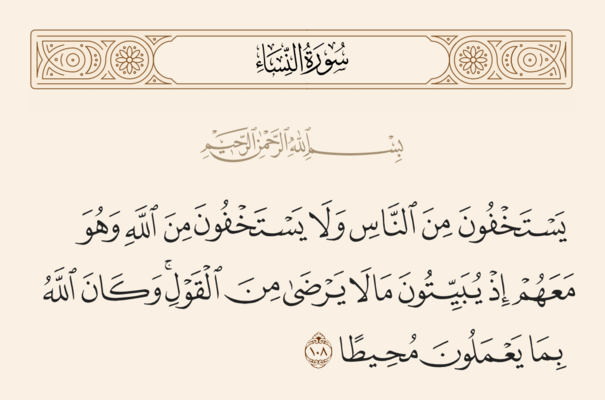 سُورَةُ النِّسَاءِ
بِسْمِ ٱللَّهِ ٱلرَّحْمَٰنِ ٱلرَّحِيمِ
يَسْتَخْفُونَ مِنَ ٱلنَّاسِ وَلَا يَسْتَخْفُونَ مِنَ ٱللَّهِ وَهُوَ
مَعَهُمْ إِذْ يُبَيِّتُونَ مَا لَا يَرْضَىٰ مِنَ ٱلْقَوْلِ ۚ وَكَانَ ٱللَّهُ
بِمَا يَعْمَلُونَ مُحِيطًا ١٠٨